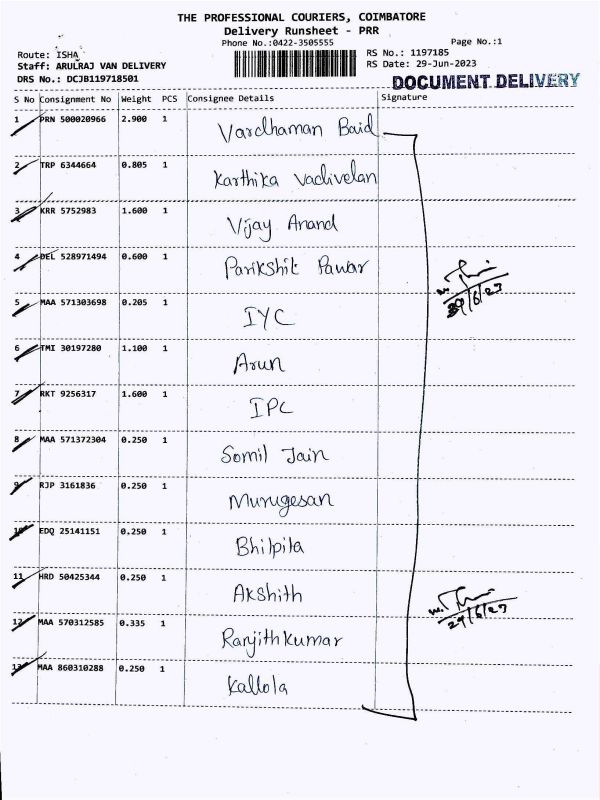 THE PROFESSIONAL COURIERS, COIMBATORE
Delivery Runsheet - PRR
Phone No.:0422-3505555 Page No.:1
Route: ISHA RS No.: 1197185
Staff: ARULRAJ VAN DELIVERY RS Date: 29-Jun-2023
DRS No.: DCJB119718501 DOCUMENT DELIVERY
S No Consignment No Weight PCS Consignee Details Signature
1 PRN 500020966 2.900 1 Vardhaman Baid
2 TRP 6344664 0.805 1 Karthika Vadivelan
3 KRR 5752983 1.600 1 Vijay Anand
4 DEL 528971494 0.600 1 Parikshit Pawar
29/6/23
5 MAA 571303698 0.205 1 IYC
6 TMI 30197280 1.100 1 Arun
7 RKT 9256317 1.600 1 IPC
8 MAA 571372304 0.250 1 Somil Jain
9 RJP 3161836 0.250 1 Murugesan
10 EDQ 25141151 0.250 1 Bhilpita
11 HRD 50425344 0.250 1 Akshith
29/6/23
12 MAA 570312585 0.335 1 Ranjithkumar
13 MAA 860310288 0.250 1 Kallola